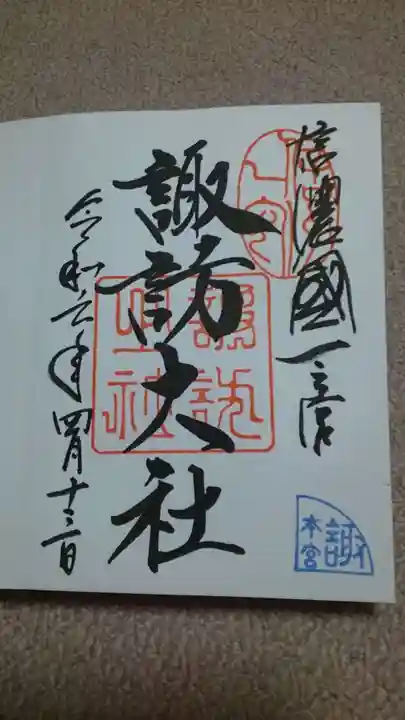 信濃國一之宮
諏訪大社
令和六年四月十三日
諏
本宮